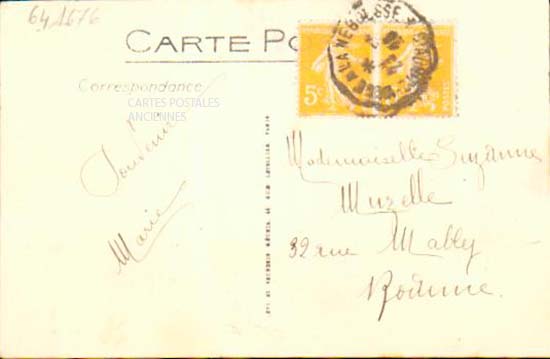 641676
CARTE PO
Correspondance
CARTES POSTALES
ANCIENNES
Souvenir
Marie
5c
LA NEGRESSE
Mademoiselle Suzanne
Muzelle
32 rue Mably
Roanne.